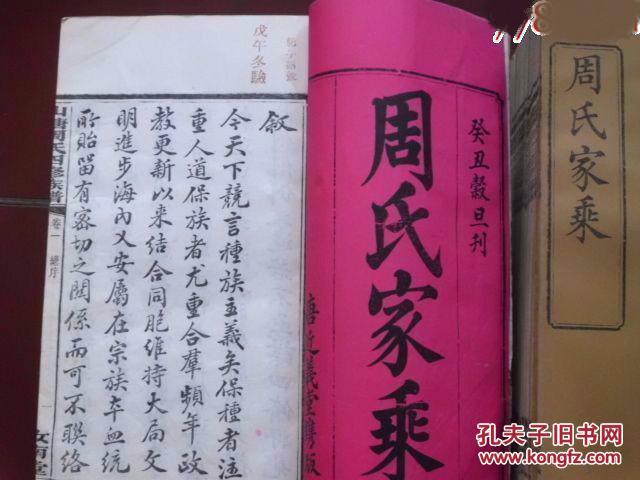 周氏家乘
癸丑榖旦刊
周氏家乘
義堂
戊午冬驗
敘
今天下競言種族主義矣保種者注
重人道保族者尤重合羣頻年政
教更新以來結合同胞維持大局文
明進步海內乂安屬在宗族卒血統
所貽留有密切之関係而可不聯络
周氏四修族譜
卷一
總序
孔夫子旧书网